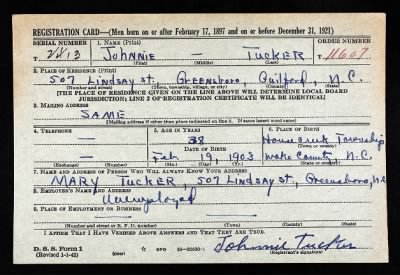 REGISTRATION CARD—(Men born on or after February 17, 1897 and on or before December 31, 1921)
SERIAL NUMBER 1. NAME (Print) ORDER NUMBER
T JOHNNIE — TUCKER
(First) (Middle) (Last)
2. PLACE OF RESIDENCE (Print)
507 Lindsay St., Greensboro, Guilford, N.C.
(Number and street) (Town, township, village, or city) (County) (State)
[THE PLACE OF RESIDENCE GIVEN ON THE LINE ABOVE WILL DETERMINE LOCAL BOARD
JURISDICTION; LINE 2 OF REGISTRATION CERTIFICATE WILL BE IDENTICAL]
3. MAILING ADDRESS
SAME
[Mailing address if other than place indicated on line 2. If same insert word same]
4. TELEPHONE 5. AGE IN YEARS 6. PLACE OF BIRTH
— 38 Housecreek Township
DATE OF BIRTH (Town or county)
— Feb 19, 1903 Wake County, N.C.
(Exchange) (Number) (Mo.) (Day) (Yr.) (State or country)
7. NAME AND ADDRESS OF PERSON WHO WILL ALWAYS KNOW YOUR ADDRESS
MARY TUCKER, 507 LINDSAY St., Greensboro, N.C.
8. EMPLOYER'S NAME AND ADDRESS
Unemployed
9. PLACE OF EMPLOYMENT OR BUSINESS
— — — —
(Number and street or R. F. D. number) (Town) (County) (State)
I AFFIRM THAT I HAVE VERIFIED ABOVE ANSWERS AND THAT THEY ARE TRUE.
D. S. S. Form 1 GPO
(Revised 1-1-42) Johnnie Tucker
(Registrant's signature)